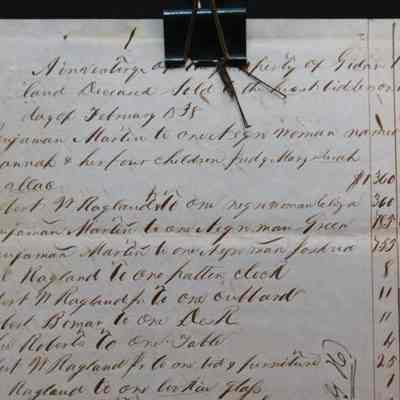 A inventory of the property of Gidan
land Deceased Sold to the best bidder on
day of February 1835
jaman Martin to one Negro woman named
annah & her four children Judy Mary
allac $1360
bert W Ragland Jr to one negro woman Eliza 360
jaman Martin to one Negro man Green
jaman Martin to one Negro man Joshua 755
Ragland to one patten clock 8
bert W Ragland Jr to one cubbard 11
bert Boman to one Desk 11
Roberts to one Table 4
bert W Ragland Jr to one bed & furniture 25
Ragland to one lookin glass 1